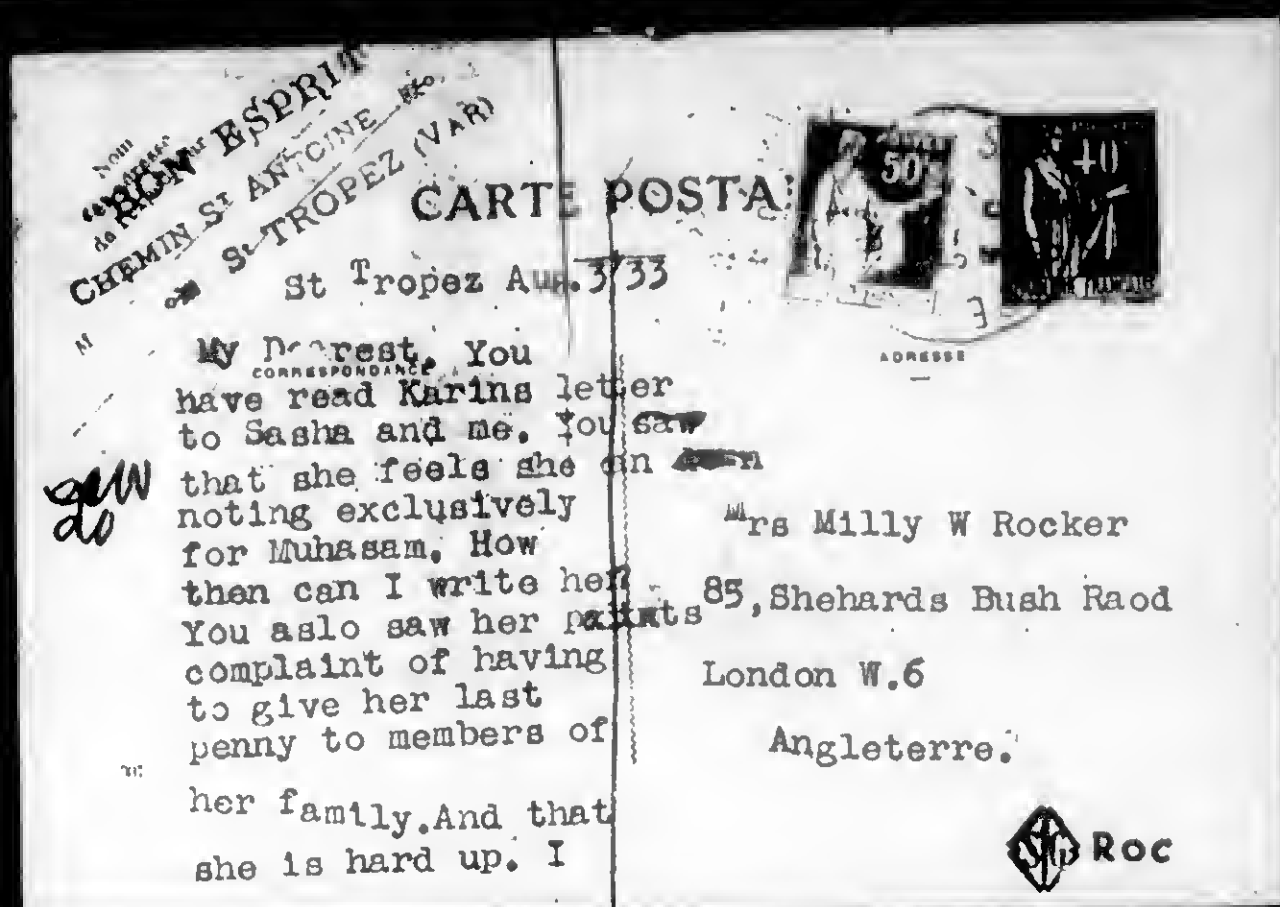 Nom
"BON ESPRIT
CHEMIN St ANTOINE
St TROPEZ (VAR)
CARTE POSTA
50c
40
St Tropez Aug.3/33
ADRESSE
My Dearest. You
CORRESPONDANCE
have read Karins letter
to Sasha and me. You saw
that she feels she
noting exclusively
for Muhasam. How
then can I write her
You aslo saw her
complaint of having
to give her last
penny to members of
her family.And that
she is hard up. I
do
Mrs Milly W Rocker
85,Shehards Bush Raod
London W.6
Angleterre.
Roc